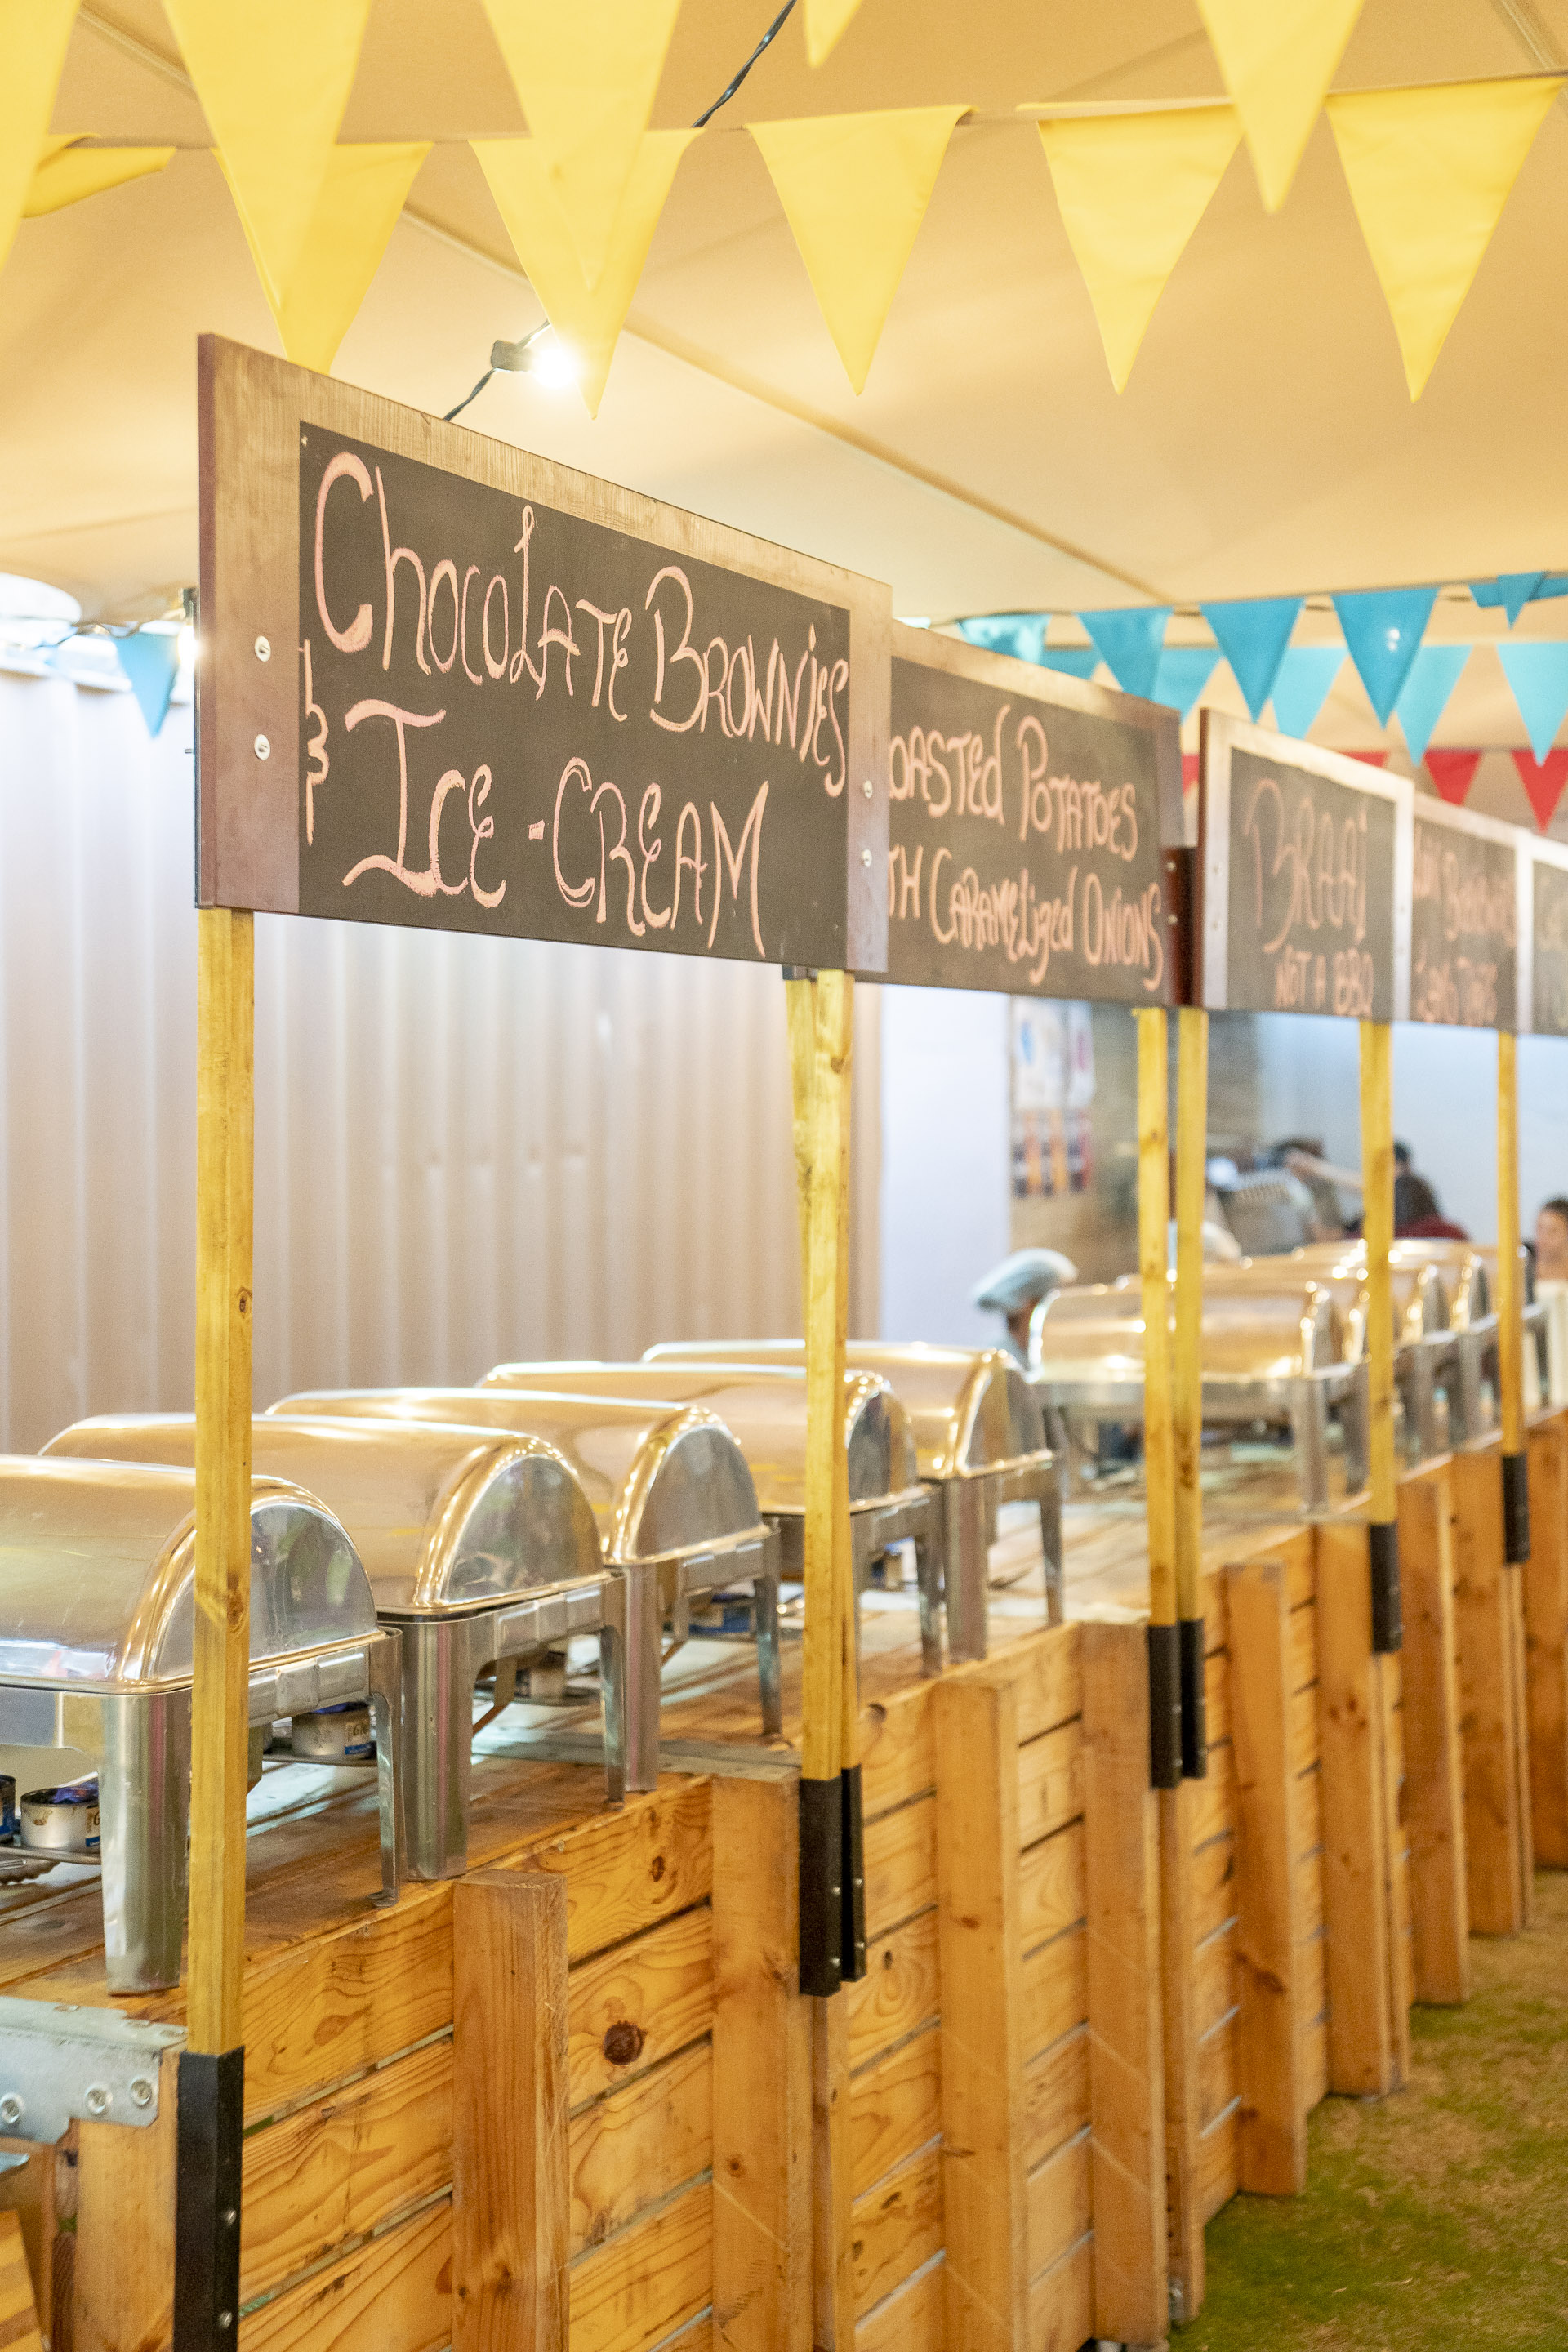 Chocolate Brownies
& Ice-Cream
oasted Potatoes
th Caramelized Onions
BRAAi
NOT A BBQ